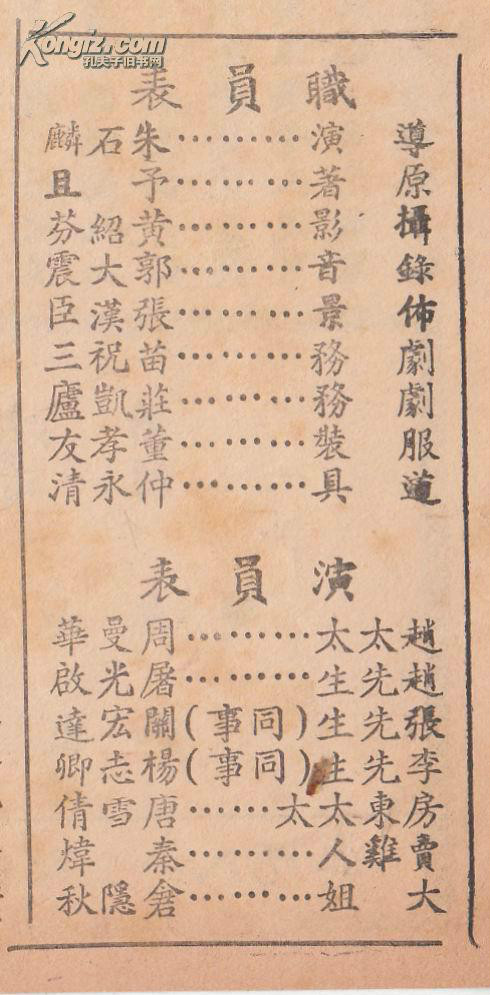 Kongfz.com
孔夫子旧书网
職員表
導演…………朱石麟
原著…………予且
攝影…………黃紹芬
錄音…………郭大震
佈景…………張漢臣
劇務…………苗祝三
劇務…………莊凱廬
服裝…………董孝友
道具…………仲永清
演員表
趙太太…………周曼華
趙先生…………屠光啟
張先生(同事)關宏達
李先生(同事)楊志卿
房東太太………唐雪倩
賣雞人…………秦煒
大姐…………隱秋